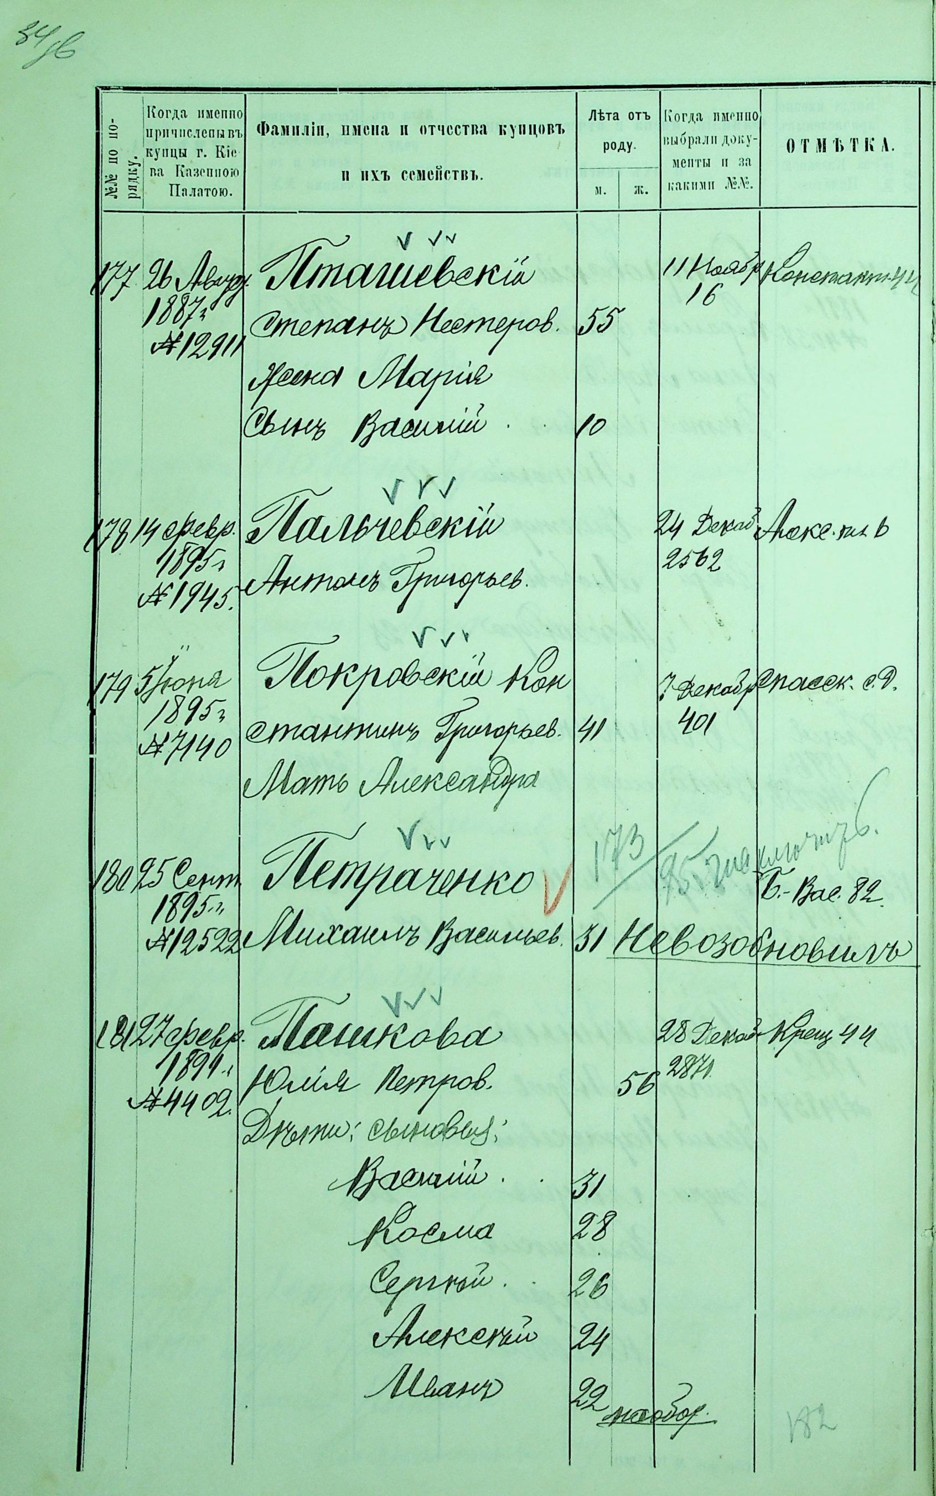 №№ по по-
рядку.
Когда именно
причислены въ
купцы г. Кіе
ва Казенною
Палатою.
Фамиліи, имена и отчества купцовъ
и ихъ семействъ.
Лѣта отъ
роду.
м.
ж.
Когда именно
выбрали доку-
менты и за
какими №№.
ОТМѢТКА.
177 26 Август. Пташевскій 11 Ноябр
1887г 16
№12911 Степанъ Нестеров. 55
Жена Марія
Сынъ Василій 10
178 14 февр. Пальчевскій 24 Декаб
1895г 2562
№1945. Антонъ Григорьев.
179 5 Іюня Покровскій Кон 7 Декабр Спасск. с.д.
1895г 401
№7140 стантинъ Григорьев. 41
Мать Александра
180 25 Сент. Петраченко 173
1895г. Б.-Вас. 82.
№12522 Михаилъ Васильев. 31 Невозобновилъ
181 27 февр. Пашкова 28 Декаб Крещ 44
1891г. 2871
№4402. Юлія Петров. 56
Дѣти: сыновья:
Василій 31
Косма 28
Сергѣй 26
Алексѣй 24
Иванъ 22
на обор.
182